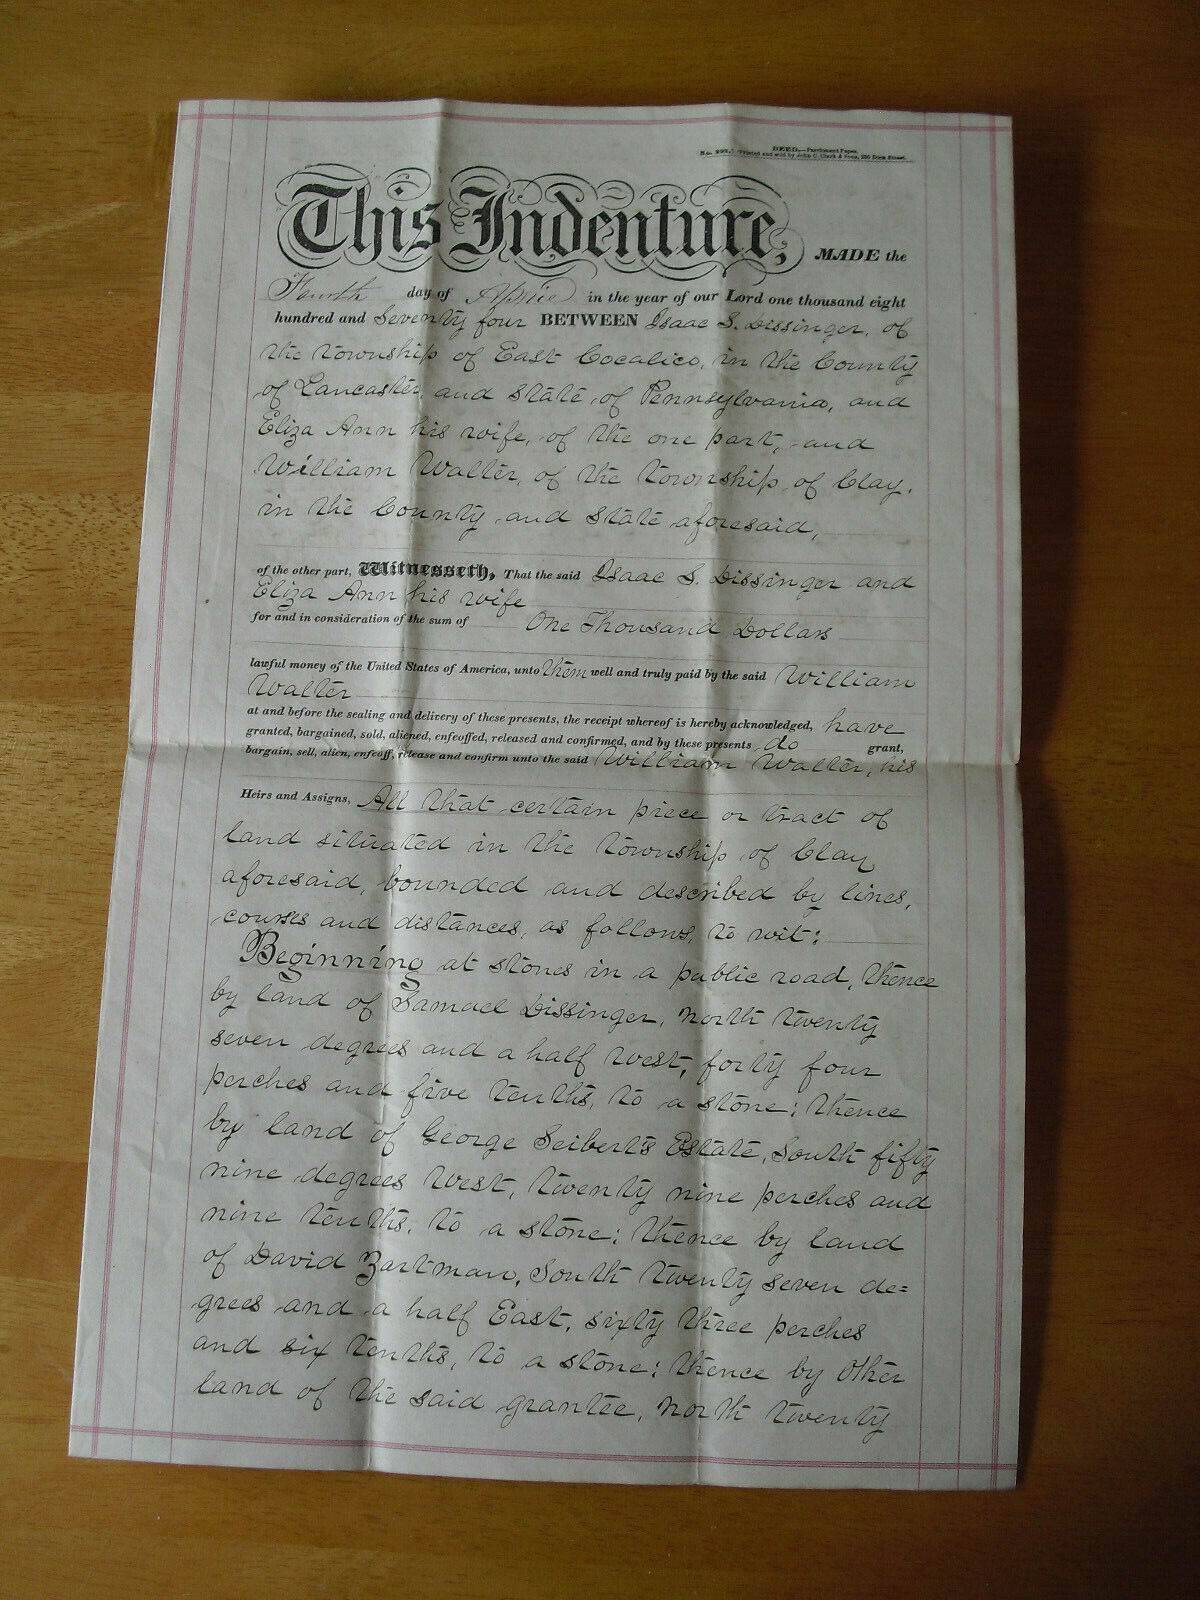 DEED.—Parchment Paper.
No. 
Printed and sold by John C. Clark & Sons, 230 Dock Street.
This Indenture, MADE the
Fourth day of April in the year of our Lord one thousand eight
hundred and Seventy four BETWEEN Isaac S. Dissinger, of
the township of East Cocalico, in the County
of Lancaster, and State of Pennsylvania, and
Eliza Ann his wife, of the one part, and
William Walter, of the township of Clay,
in the County and State aforesaid,
of the other part, Witnesseth, That the said Isaac S. Dissinger and
Eliza Ann his wife
for and in consideration of the sum of One Thousand Dollars
lawful money of the United States of America, unto them well and truly paid by the said William
Walter
at and before the sealing and delivery of these presents, the receipt whereof is hereby acknowledged, have
granted, bargained, sold, aliened, enfeoffed, released and confirmed, and by these presents do grant,
bargain, sell, alien, enfeoff, release and confirm unto the said William Walter, his
Heirs and Assigns, All that certain piece or tract of
land situated in the township of Clay
aforesaid, bounded and described by lines,
courses and distances, as follows, to wit:
Beginning at stones in a public road, thence
by land of Samuel Dissinger, North twenty
seven degrees and a half West, forty four
perches and five tenths, to a stone; thence
by land of George Seibert's Estate, South fifty
nine degrees West, twenty nine perches and
nine tenths, to a stone; thence by land
of David Zartman, South twenty seven de=
grees and a half East, sixty three perches
and six tenths, to a stone; thence by other
land of the said grantee, North twenty